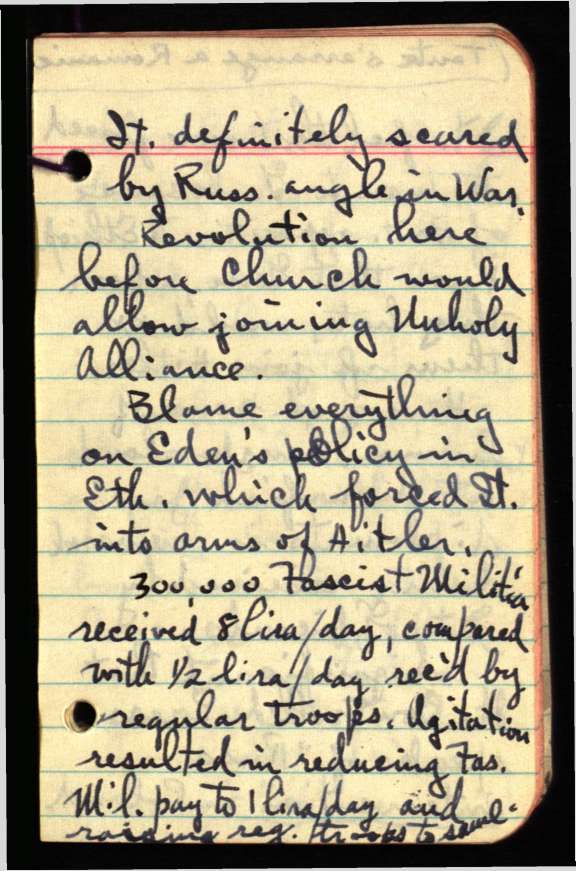 It. definitely scared
by Russ. angle in War.
Revolution here
before Church would
allow joining Unholy
Alliance.
Blame everything
on Eden's policy in
Eth. which forced It.
into arms of Hitler.
300,000 Fascist Militia
received 8 lira/day, compared
with 1/2 lira/day rec'd by
regular troops. Agitation
resulted in reducing Fas.
Mil. pay to 1 lira/day and
raising reg. troops to same.